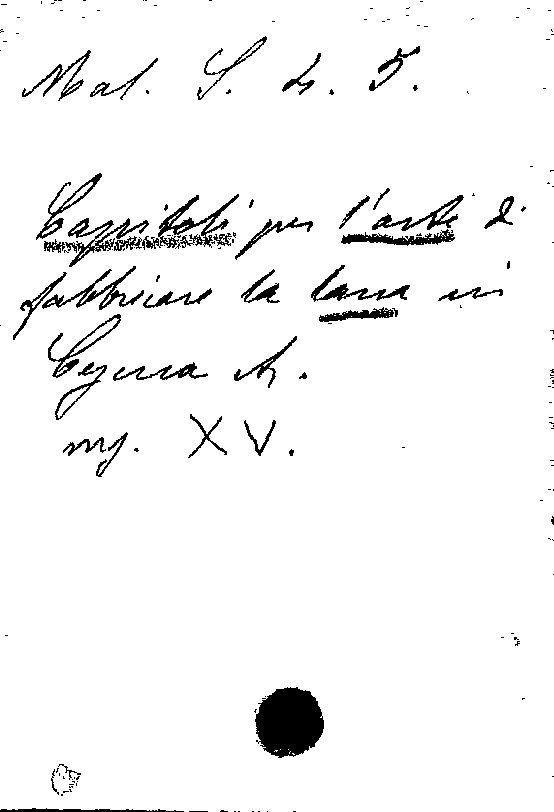 Mal. S. 4. 5.
Capitoli per l'arte di
fabbricare la lana in
ms. XV.